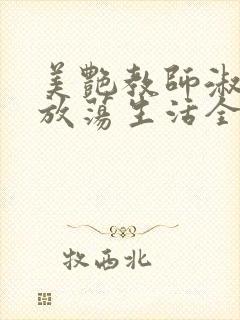 美艷教師淑
放蕩生活全
牧西北